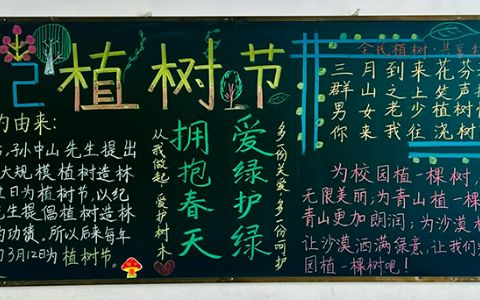 2 植树节
为由来:
孙中山先生提出
大规模植树造林
日为植树节,以纪
先生提倡植树造林
的功绩。所以后来每年
3月12日为植树节。
从我做起,爱护树木
拥抱春天
爱绿护绿
多一份关爱,多一份呵护
全民植树·共享
三月到来花芬
群山之上笑声
男女老少植树
你来我往浇树
为校园植一棵树,
无限美丽;为青山植一棵
青山更加朗润;为沙漠
让沙漠洒满绿意,让我们
园植一棵树吧!